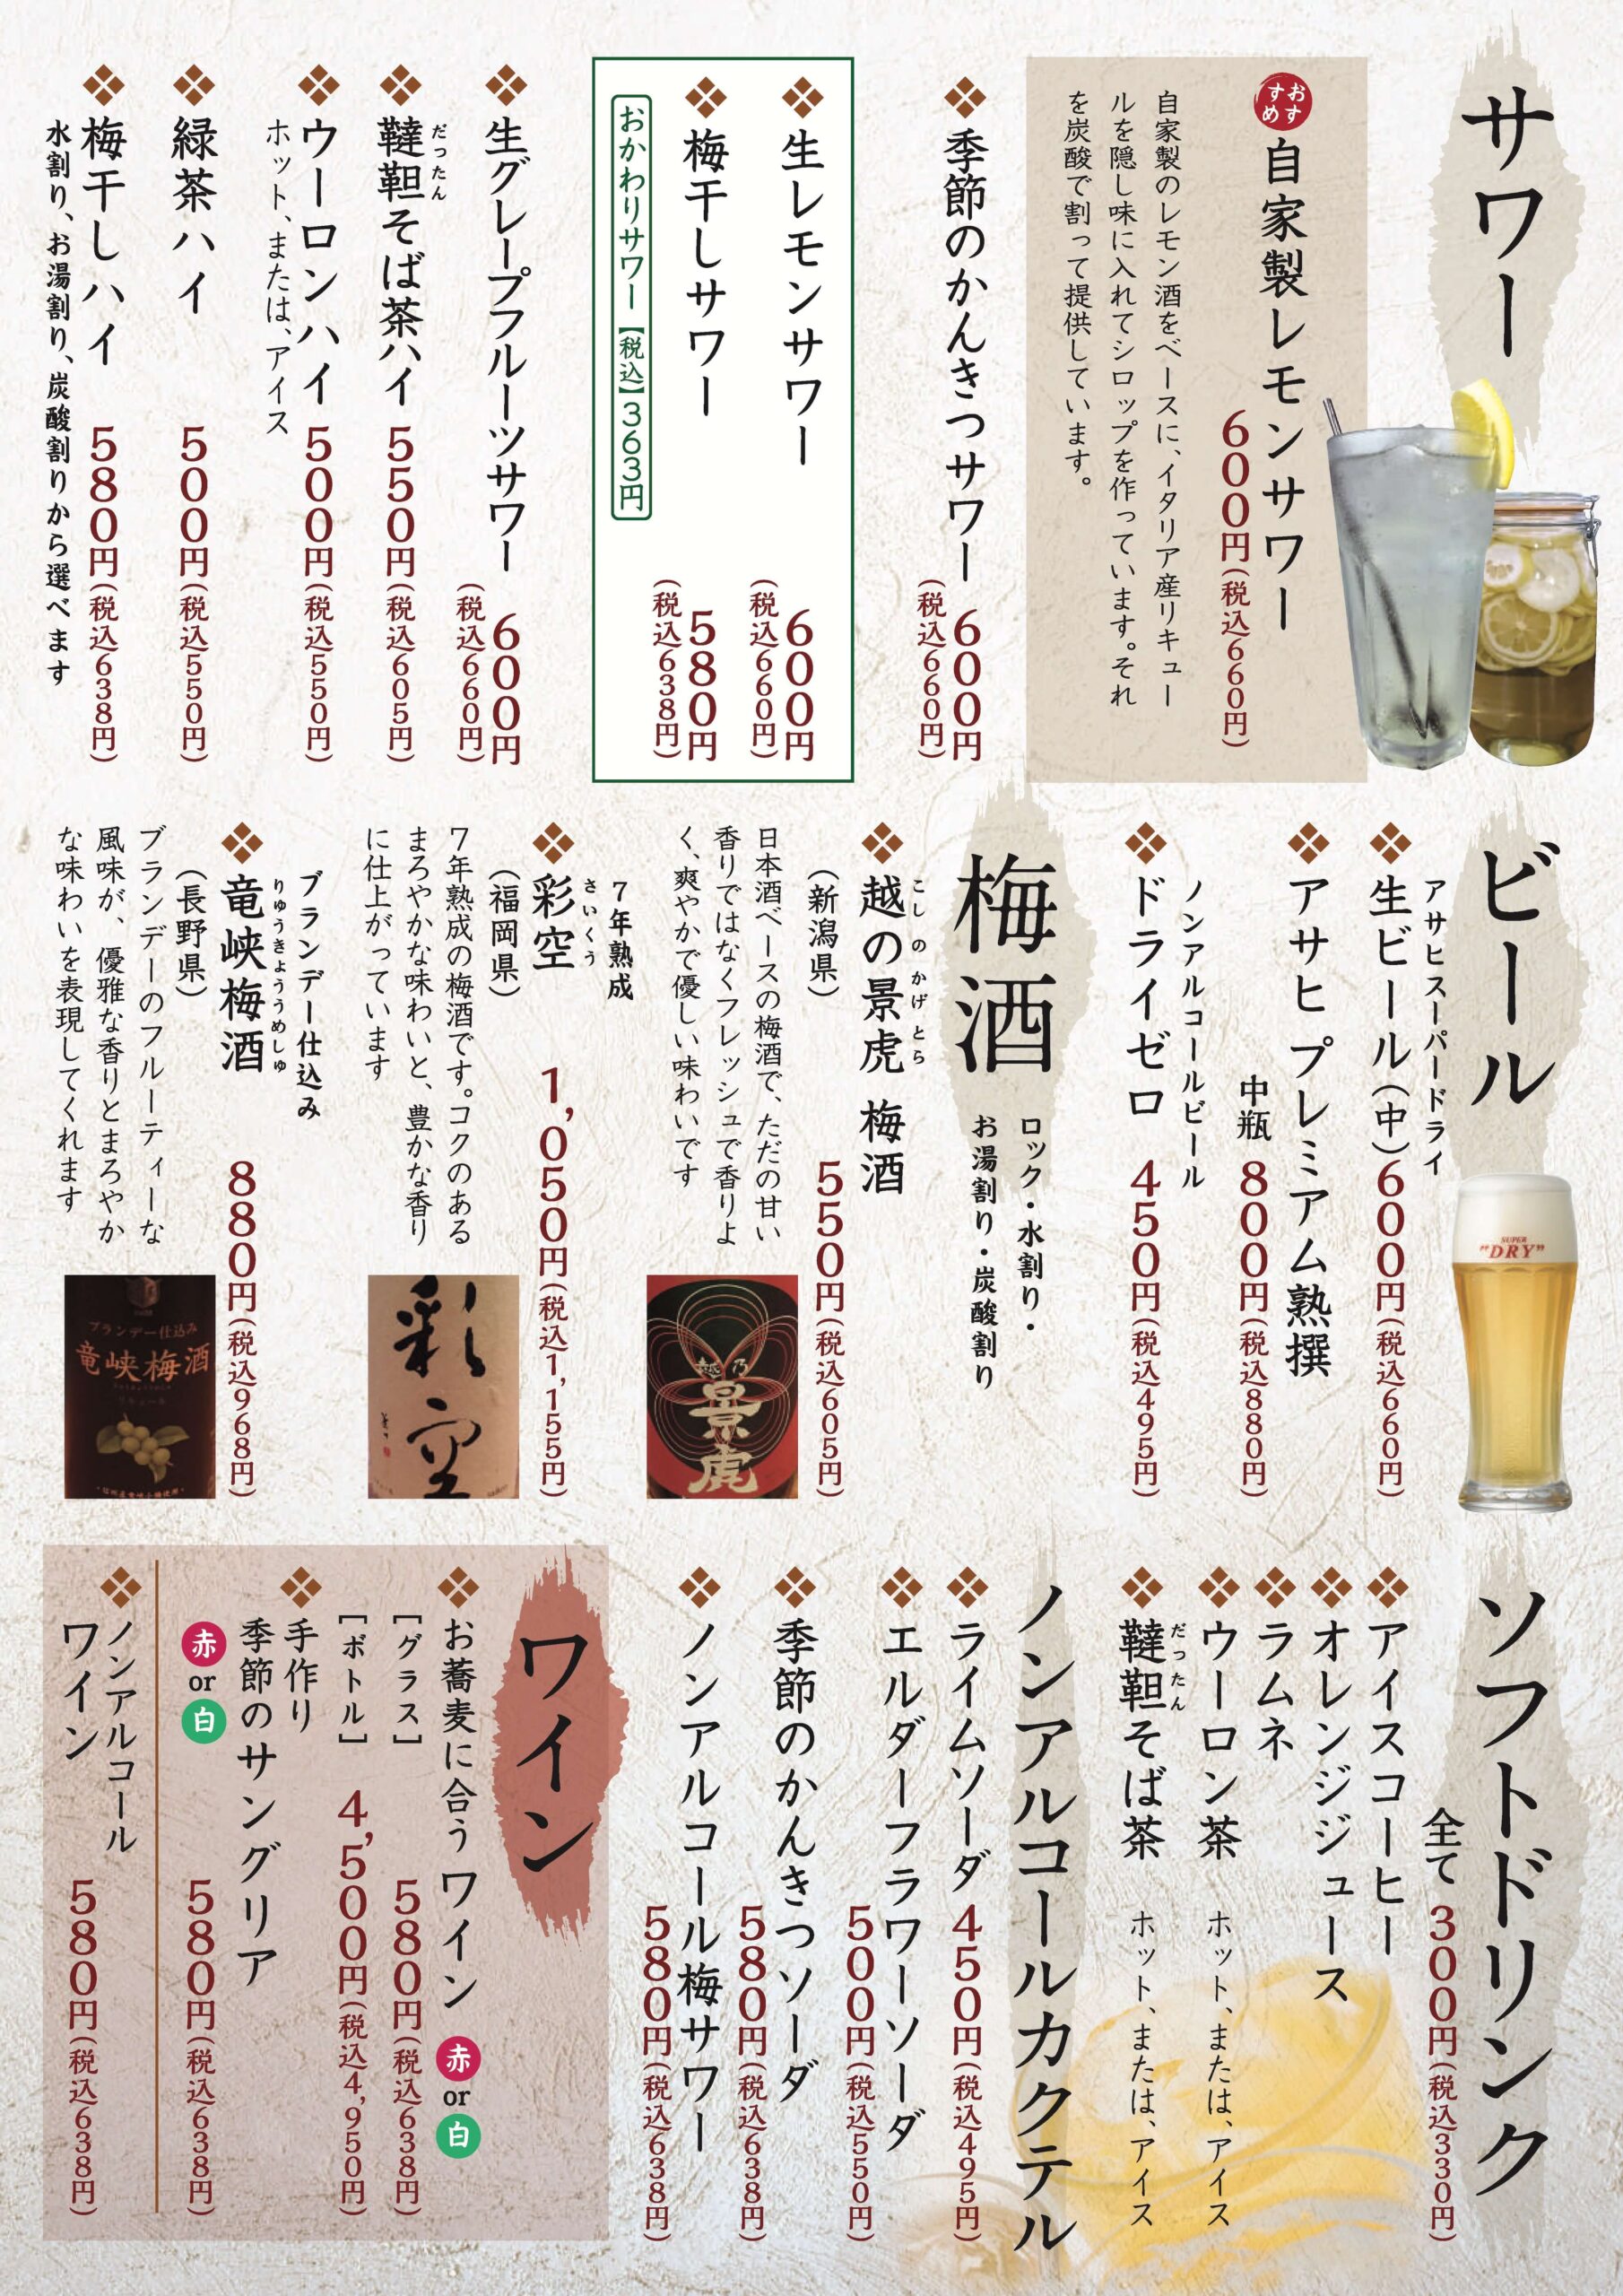 サワー
おすすめ
自家製レモンサワー
600円(税込660円)
自家製のレモン酒をベースに、イタリア産リキュー
ルを隠し味に入れてシロップを作っています。それ
を炭酸で割って提供しています。
季節のかんきつサワー
600円
(税込660円)
生レモンサワー
600円
(税込660円)
梅干しサワー
580円
(税込638円)
おかわりサワー【税込】363円
生グレープフルーツサワー
600円
(税込660円)
だったん
韃靼そば茶ハイ 550円(税込605円)
ウーロンハイ 500円(税込550円)
ホット、または、アイス
緑茶ハイ 500円(税込550円)
梅干しハイ 580円(税込638円)
水割り、お湯割り、炭酸割りから選べます
ビール
アサヒスーパードライ
生ビール(中)600円(税込660円)
アサヒ プレミアム熟撰
中瓶 800円(税込880円)
ノンアルコールビール
ドライゼロ 450円(税込495円)
SUPER
"DRY"
梅酒
ロック・水割り・
お湯割り・炭酸割り
こしのかげとら
越の景虎 梅酒
550円(税込605円)
(新潟県)
日本酒ベースの梅酒で、ただの甘い
香りではなくフレッシュで香りよ
く、爽やかで優しい味わいです
越乃
景虎
7年熟成
さいくう
彩空 1,050円(税込1,155円)
(福岡県)
7年熟成の梅酒です。コクのある
まろやかな味わいと、豊かな香り
に仕上がっています
彩空
ブランデー仕込み
りゅうきょううめしゅ
竜峡梅酒 880円(税込968円)
(長野県)
ブランデーのフルーティーな
風味が、優雅な香りとまろやか
な味わいを表現してくれます
ブランデー仕込み
竜峡梅酒
リキュール
ソフトドリンク
全て 300円(税込330円)
アイスコーヒー
オレンジジュース
ラムネ
ウーロン茶 ホット、または、アイス
だったん
韃靼そば茶 ホット、または、アイス
ノンアルコールカクテル
ライムソーダ 450円(税込495円)
エルダーフラワーソーダ
500円(税込550円)
季節のかんきつソーダ
580円(税込638円)
ノンアルコール梅サワー
580円(税込638円)
ワイン
お蕎麦に合うワイン 赤 or 白
[グラス] 580円(税込638円)
[ボトル] 4,500円(税込4,950円)
手作り
季節のサングリア
赤 or 白 580円(税込638円)
ノンアルコール
ワイン 580円(税込638円)